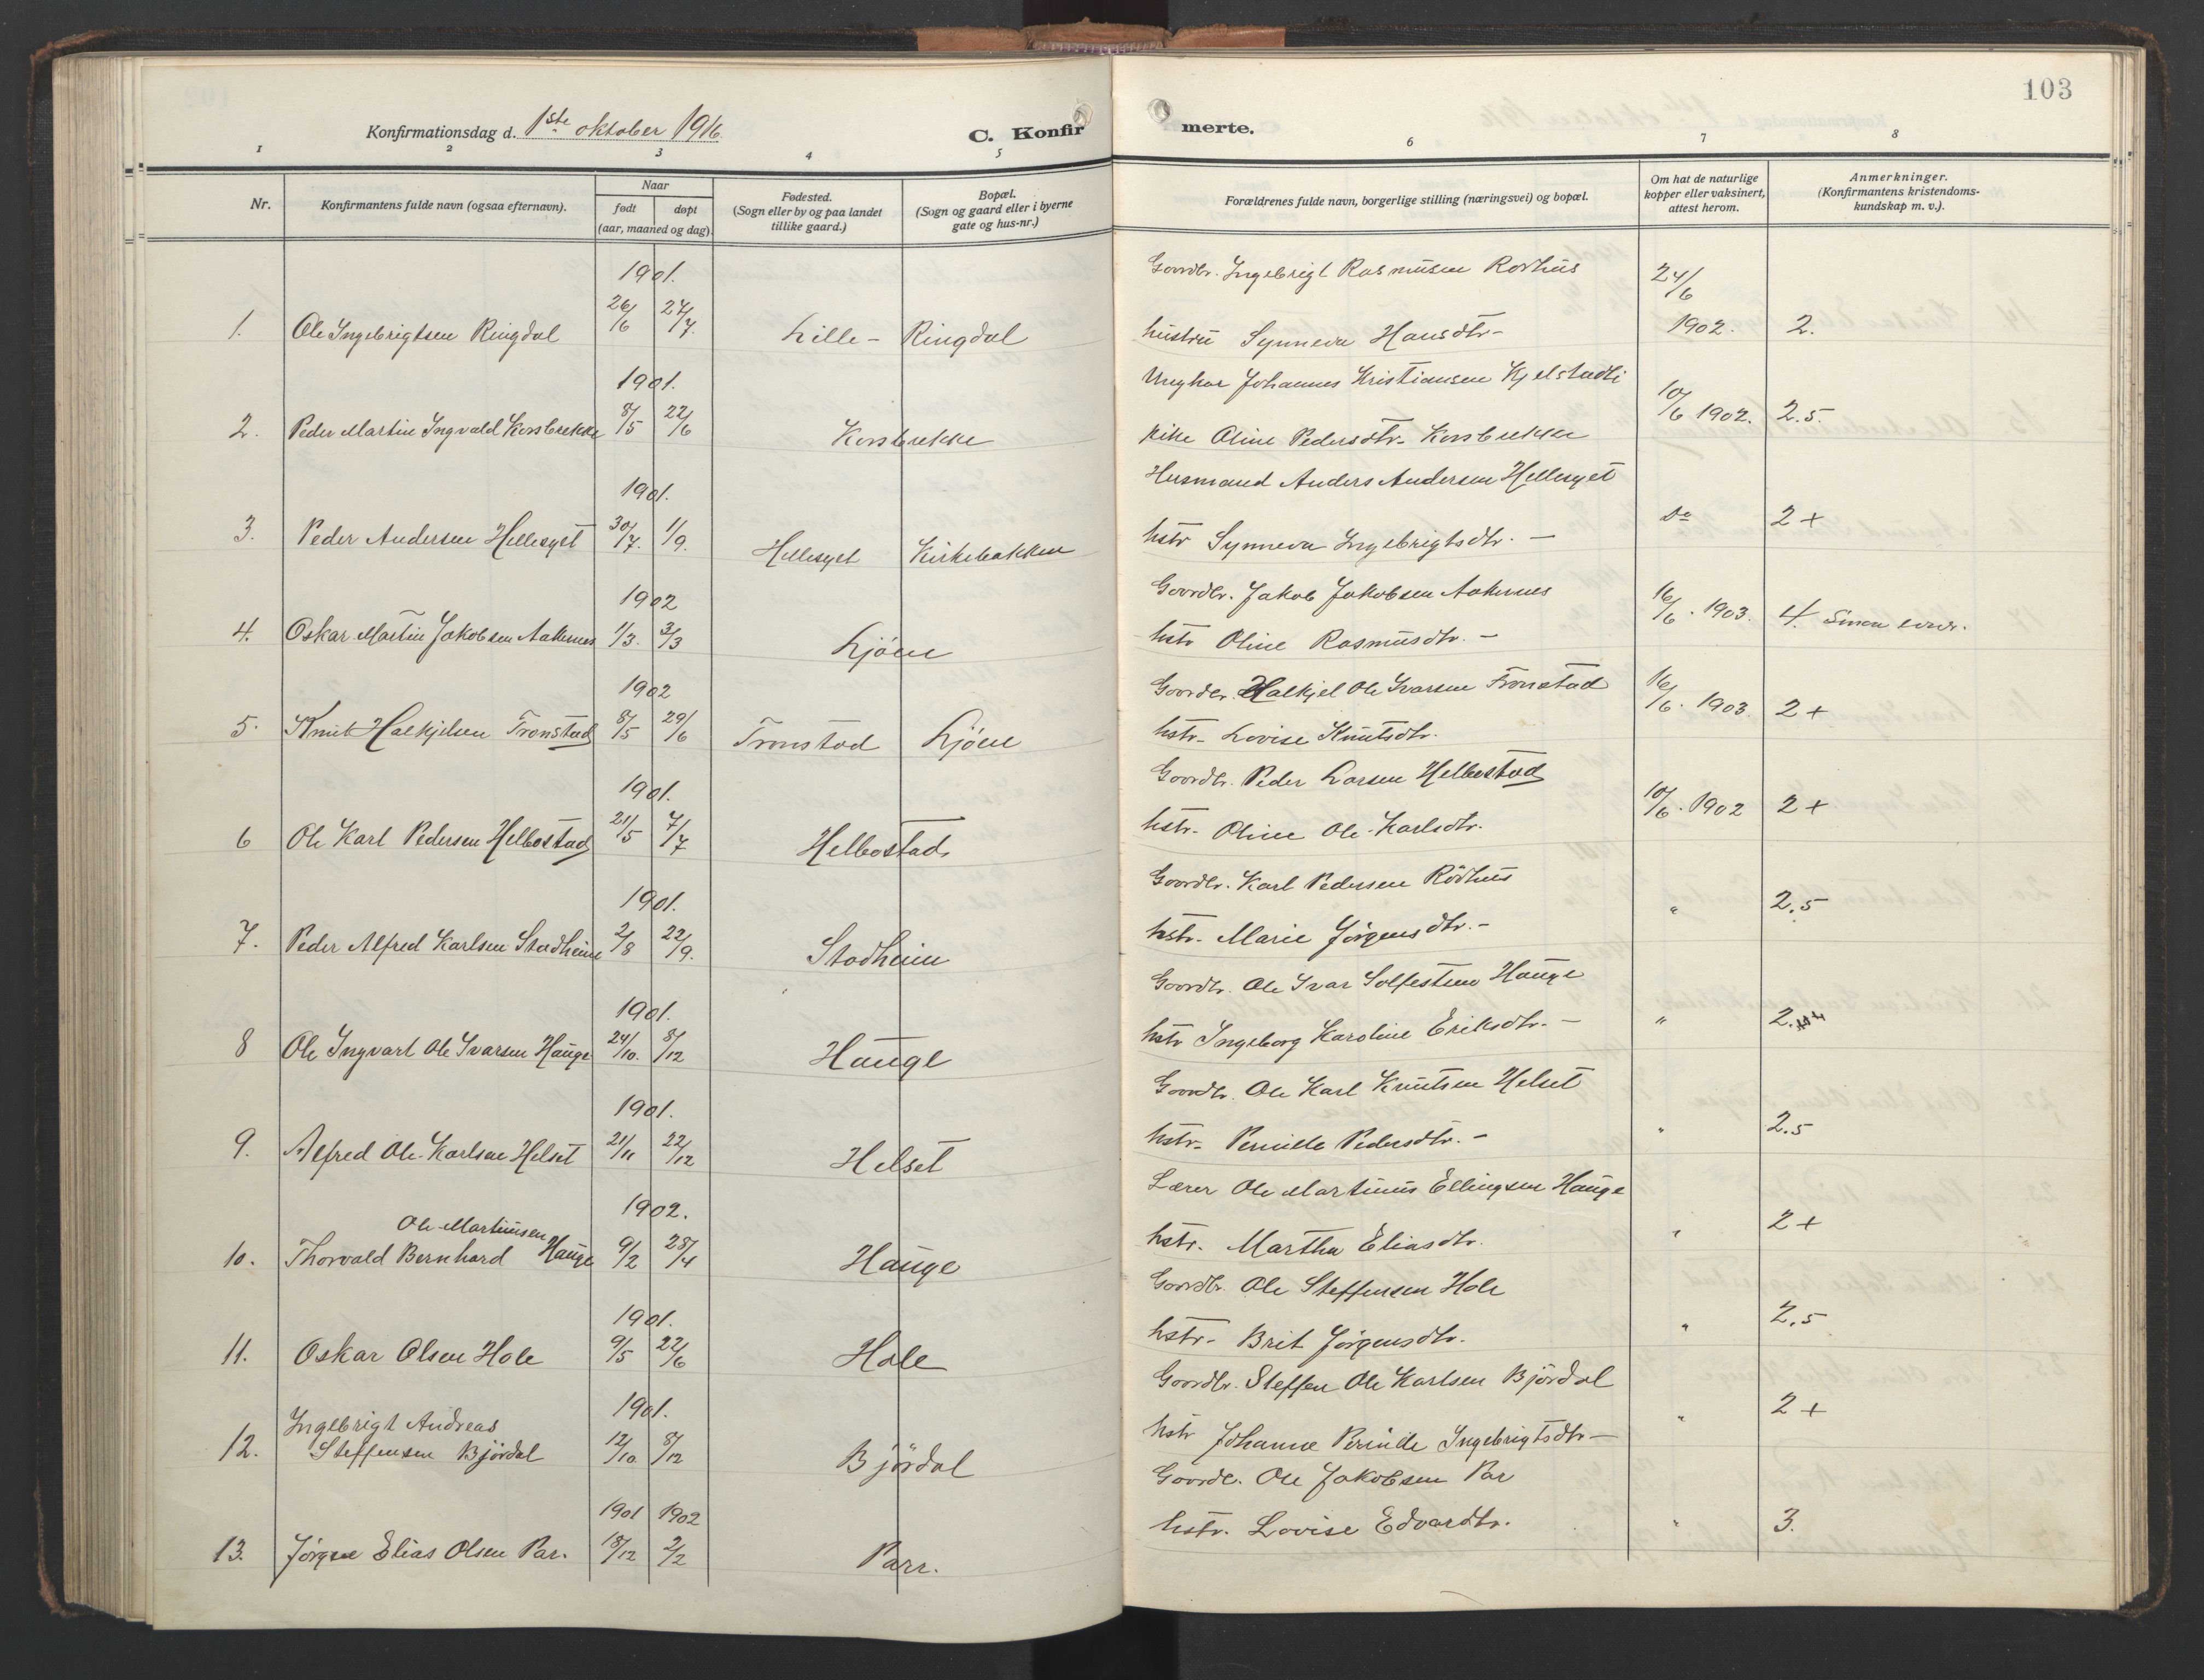 103
Konfirmationsdag d. 1ste oktober 1916.
C. Konfir merte.
1 2 3 4 5 6 7 8
Nr.
Konfirmantens fulde navn (ogsaa efternavn).
Naar
født
døpt
(aar, maaned og dag).
Fødested.
(Sogn eller by og paa landet
tillike gaard.)
Bopæl.
(Sogn og gaard eller i byerne
gate og hus-nr.)
Forældrenes fulde navn, borgerlige stilling (næringsvei) og bopæl.
Om hat de naturlige
kopper eller vaksinert,
attest herom.
Anmerkninger.
(Konfirmantens kristendoms-
kundskap m. v.).
1901. Gaardbr. Ingebrigt Rasmusen Rødhus 24/6
1. Ole Ingebrigtsen Ringdal 26/6 27/7. Lille-Ringdal hustru Synneva Hansdtr- 1902. 2.
1901. Ungkar Johannes Kristiansen Kjelstadli
2. Peder Martin Ingvald Korsbrekke 8/5 22/6 Korsbrekke pike Oline Pedersdtr- Korsbrekke 10/6 1902. 2.5.
1901. Husmand Anders Andersen Hellesyet
3. Peder Andersen Hellesyet 30/7. 1/9. Hellesyet Kirkebakken hstr Synneva Ingebrigtsdtr. - do 2+
1902 Gaardbr. Jakob Jakobsen Aakernes
4. Oskar Martin Jakobsen Aakernes 1/3. 3/3 Ljøen hstr Oline Rasmusdtr. - 16/6. 1903. 4.
1902 Gaardbr. Halkjel Ole Ivarsen Tronstad
5. Knut Halkjelsen Tronstad 8/5 29/6 Tronstad Ljøen hstr- Lovise Knutsdtr. 16/6. 1903. 2+
1901. Gaardbr. Peder Larsen Helbostad
6 Ole Karl Pedersen Helbostad 21/5 7/7 Helbostad. hstr- Oline Ole-Karlsdtr. 10/6. 1902 2+
1901. Gaardbr. Karl Pedersen Rödhus
7. Peder Alfred Karlsen Stadheim 2/8 22/9. Stadheim hstr- Marie Jörgensdtr.- " 2.5
1901. Gaardbr. Ole Ivar Solfesten Hauge
8 Ole Ingvart Ole Ivarsen Hauge 24/10. 8/12 Hauge hstr Ingeborg Karoline Eriksdtr.- "
1901. Gaardbr. Ole Karl Knutsen Helset
9. Alfred Ole-Karlsen Helset 21/11 22/12 Helset hstr- Pernille Pedersdtr.- " 2.5
1902. Lærer Ole Martinus Ellingsen Hauge
Ole-Martinusen
10. Thorvald Bernhard Hauge 9/2 28/4 Hauge hstr. Martha Eliasdtr. " 2+
1901. Gaardbr. Ole Steffensen Hole
11. Oskar Olsen Hole 9/5 22/6 Hole hstr- Brit Jörgensdtr. " 2.5
1901. Gaardbr. Steffen Ole Karlsen Björdal
Ingebrigt Andreas
12. Steffensen Björdal 12/10 8/12 Björdal hstr Johanne Pernille Ingebrigtsdtr- " 2+
1901 1902 Gaardbr. Ole Jakobsen Par
13. Jörgen Elias Olsen Par. 18/12 2/2 Parr. hstr. Lovise Edvardtr. " 3.